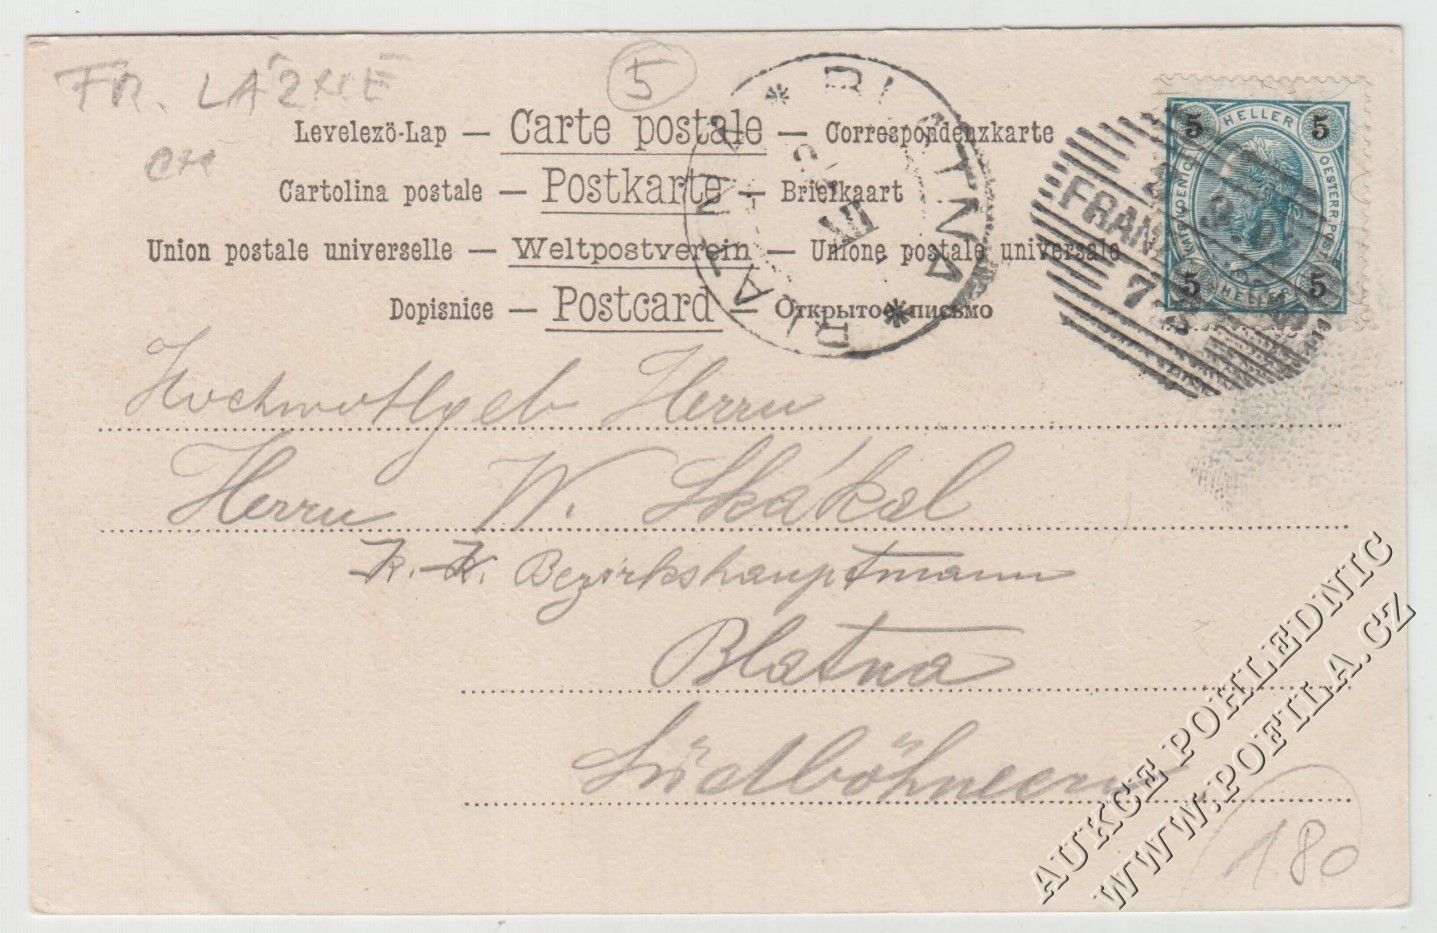 FR. LÁZNĚ
5
Levelező-Lap — Carte postale — Correspondenzkarte
Cartolina postale — Postkarte — Briefkaart
Union postale universelle — Weltpostverein — Unione postale universale
Dopisnice — Postcard — Открытое письмо
* BLATNA * BLATNÁ
5 HELLER 5
KAIS. KOENIGL. OESTERR. POST
5 HELLER 5
FRANZ
Hochwohlgeb Herrn
Herrn W. Skákal
K. K. Bezirkshauptmann
Blatna
Südböhmen
180
AUKCE POHLEDNIC
WWW.POFILA.CZ